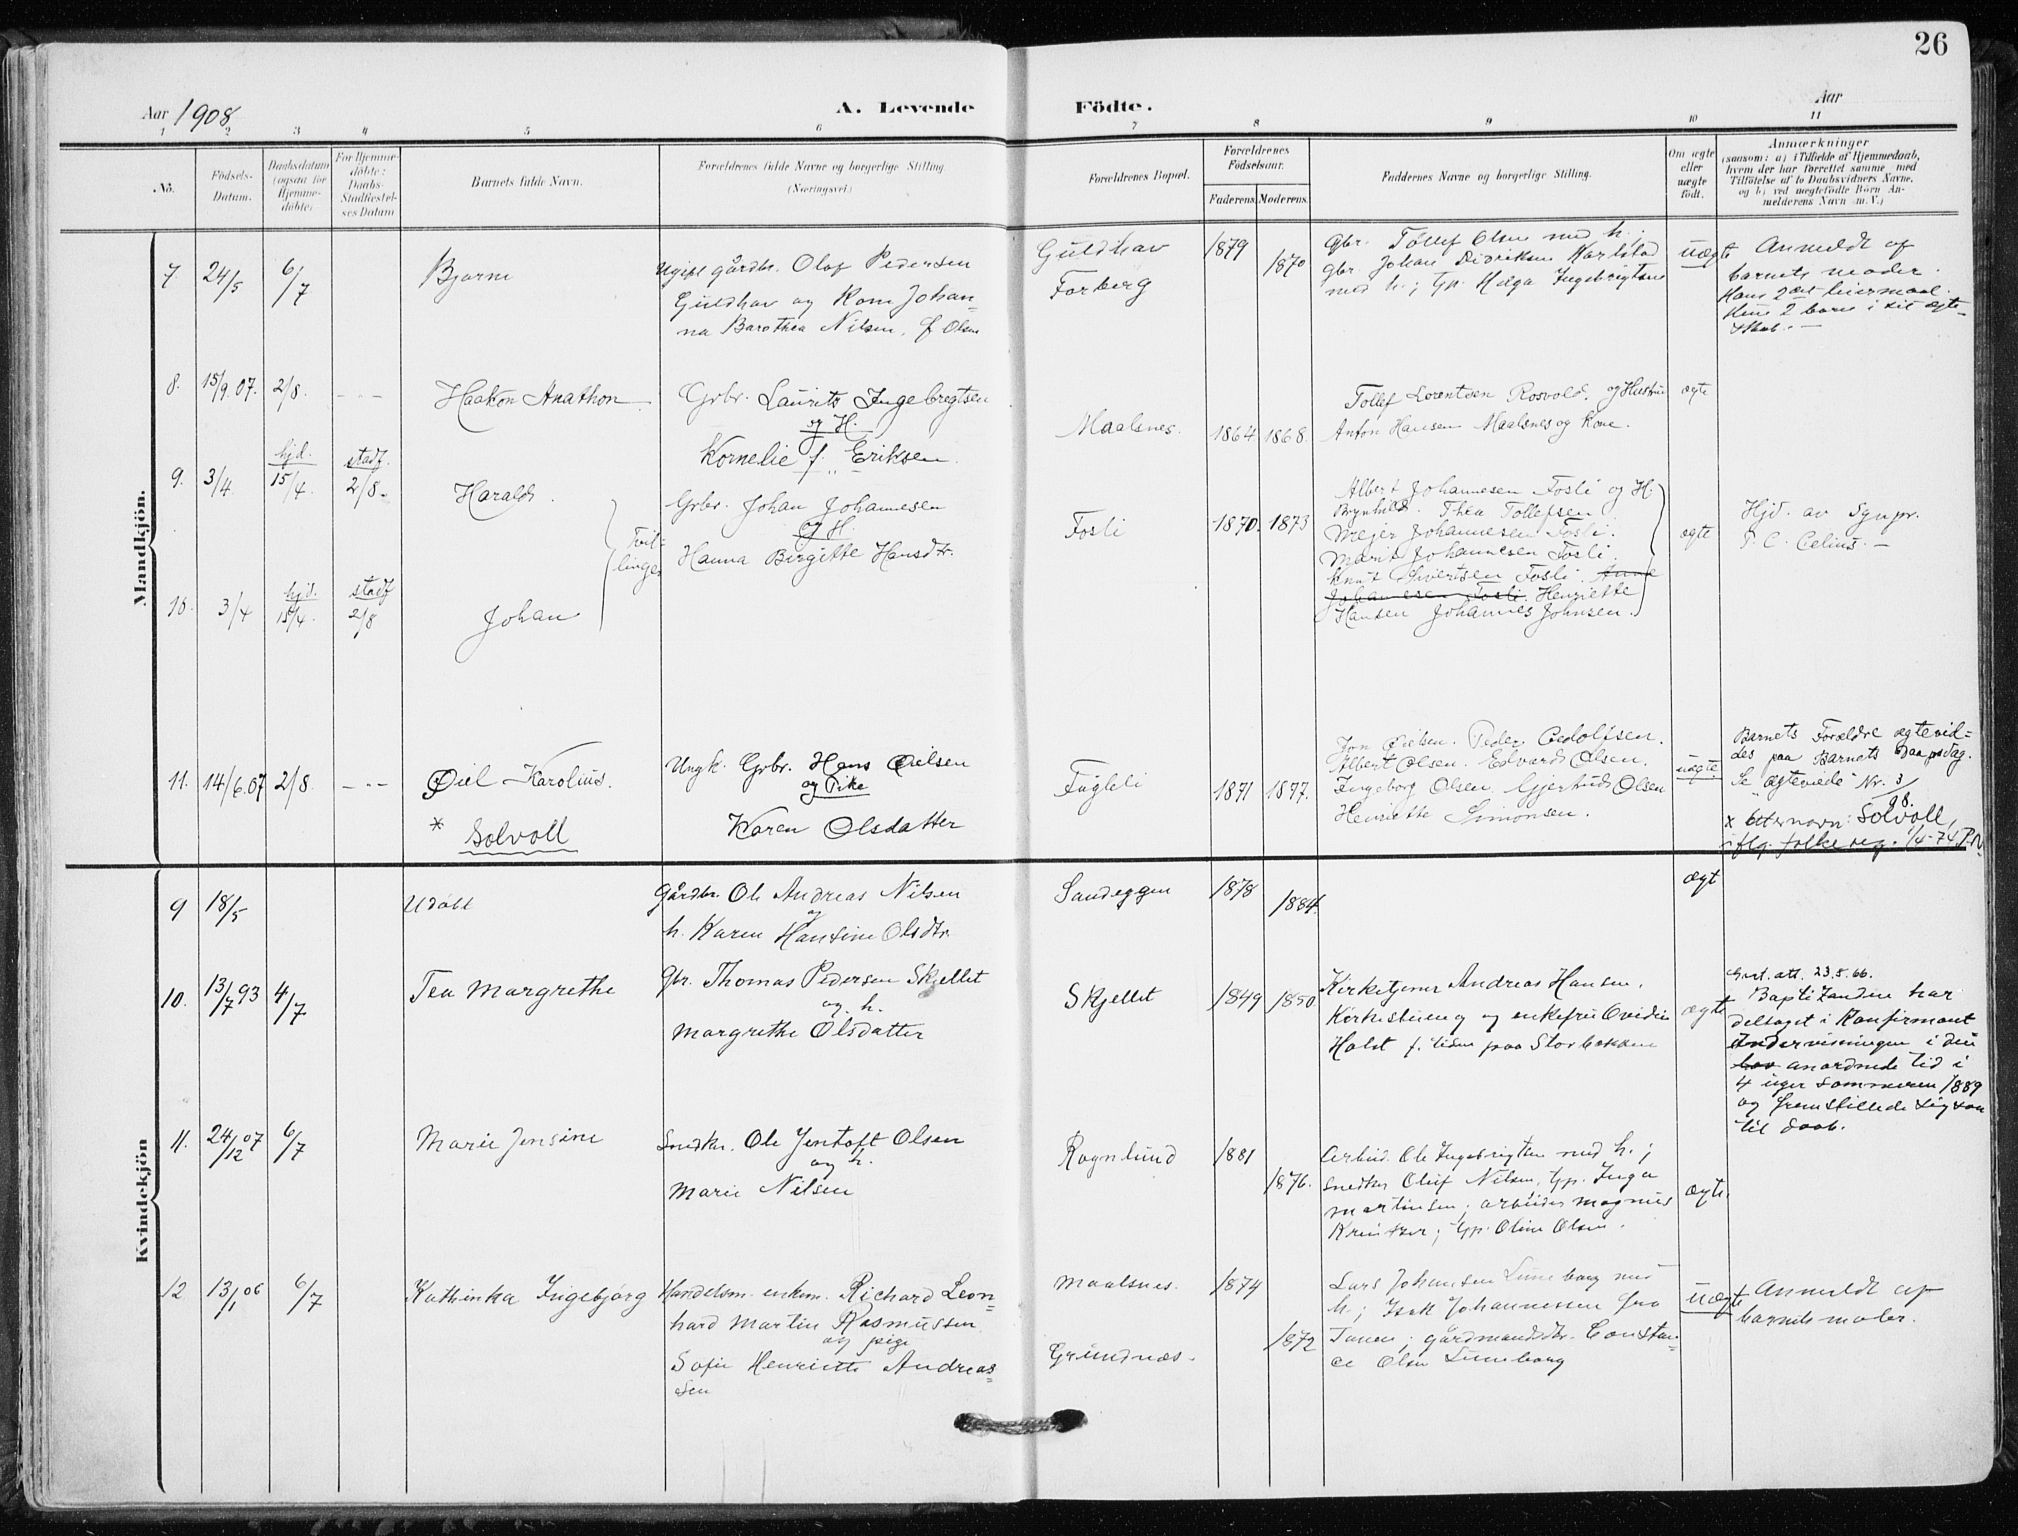 26
Aar 1908
A. Levende Födte.
Aar
1 2 3 4 5 6 7 8 9 10 11
No.
Födsels-
Datum.
Daabsdatum
(ogsaa for
Hjemme-
döbte.
For Hjemme-
döbte:
Daabs-
Stadfæstel-
ses Datum
Barnets fulde Navn.
Forældrenes fulde Navne og borgerlige Stilling.
(Næringsvei.)
Forældrenes Bopæl.
Forældrenes
Födselsaar.
Faderens. Moderens.
Faddernes Navne og borgerlige Stilling.
Om ægte
eller
uægte
födt.
Anmærkninger
(saasom: a) i Tilfælde af Hjemmedaab,
hvem der har forrettet samme, med
Tilföielse af to Daabsvidners Navne,
og b) ved uægtefödte Börn An-
melderens Navn m. V.)
Mandkjön.
7 24/5 6/7
Bjarne
Ugift gårdbr. Olaf Pedersen
Guldhav og Kone Johan-
na Barothea Nilsen, f Olsen
Guldhav
Forberg
1879
1870
Gbr. Tollef Olsen med h.;
gbr. Johan Didriksen Karlstad
med h.; tp. Helga Ingebrigtsen
uægte
Anmeldt af
barnets moder.
Hans 2det leiermaal.
Hun 2 barn i sit ægte-
skab. -
8. 15/9.07. 2/8. - - -
Haakon Anathon
Grbr. Laurits Ingebregtsen
og H.
Kornelie f. Eriksen.
Maalsnes.
1864. 1868.
Tollef Lorentsen Rosvold. og Hustru
Anton Hansen Maalsnes og Kone.
ægte
9. 3/4. hjd. 15/4. stadf. 2/8.
Harald.
Tvil-
linger
Grbr. Johan Johannesen
og H.
Hanna Birgitte Hansdtr.
Fosli
1870. 1873
Albert Johannesen Fosli og H.
Brynhild. Thea Tollefsen.
Meier Johannesen Fosli.
Marit Johannesen Fosli.
Knut Sivertsen Fosli. Anne
Johannesen Fosli. Henriette
Hansen Johannes Johnsen.
ægte
Hjd. av Sgnpr.
P. C. Celius. -
10. 3/4 hjd. 15/4. stadf 2/8
Johan
11. 14/6.07 2/8. - - -
Øiel Karolius.
* Solvoll
Ungk. Grbr. Hans Øielsen
og Pike
Karen Olsdatter
Fugleli
1871 1877.
Jon Øielsen. Peder Cedolisen.
Albert Olsen. Edvard Olsen.
Ingeborg Olsen. Gjertrud Olsen
Henriette Simonsen.
uægte.
Barnets Forældre ægtevid-
des paa Barnets Daapsdag.
Se ægteviede Nr. 3/
08.
x etternavn: Solvoll,
iflg. folkereg. 1/4-74. P.N.
Kvindekjön
9 18/5
Udöbt
Gårdbr. Ole Andreas Nilsen
og
h. Karen Hansine Olsdtr.
Sandeggen
1878
1884.
ægt
10. 13/7 93 4/7
Tea Margrethe
Gbr. Thomas Pedersen Skjellet
og h.
Margrethe Olsdatter
Skjellet
1849 1850
Kirketjener Andreas Hansen,
og enkefru Ovidia
Holst f. tiden paa Storbakken
ægte
att. 23.5.66.
Baptizanden har
deltaget i Konfirmant
undervisningen i den
lov anordnede tid i
4 uger sommeren 1889
og fremstillede sig saa
til daab.
11. 24/12 07 6/7
Marie Jensine
Snedkr. Ole Jentoft Olsen
og h.
Marie Nilsen
Rognlund
1881
1876.
Arbeid. Ole Ingebrigtsen med h.;
snedker Oluf Nilsen, tp. Inga
Martinsen; arbeider Magnus
tp. Oline Olsen.
ægte.
12 13/1 06 6/7
Kathinka Ingebjørg
Handelsm. enkem. Richard Leon-
hard Martin Rasmussen
og pige
Sofie Henriette Andreas-
sen
Maalsnes.
Grundnæs.
1874
1872
Lars Johansen Luneborg med
h.; Isak Johannessen fra
Tanen; gårdmandsdtr. Constan-
ce Olsen Luneborg
uægte
Anmeldt af
barnets moder.